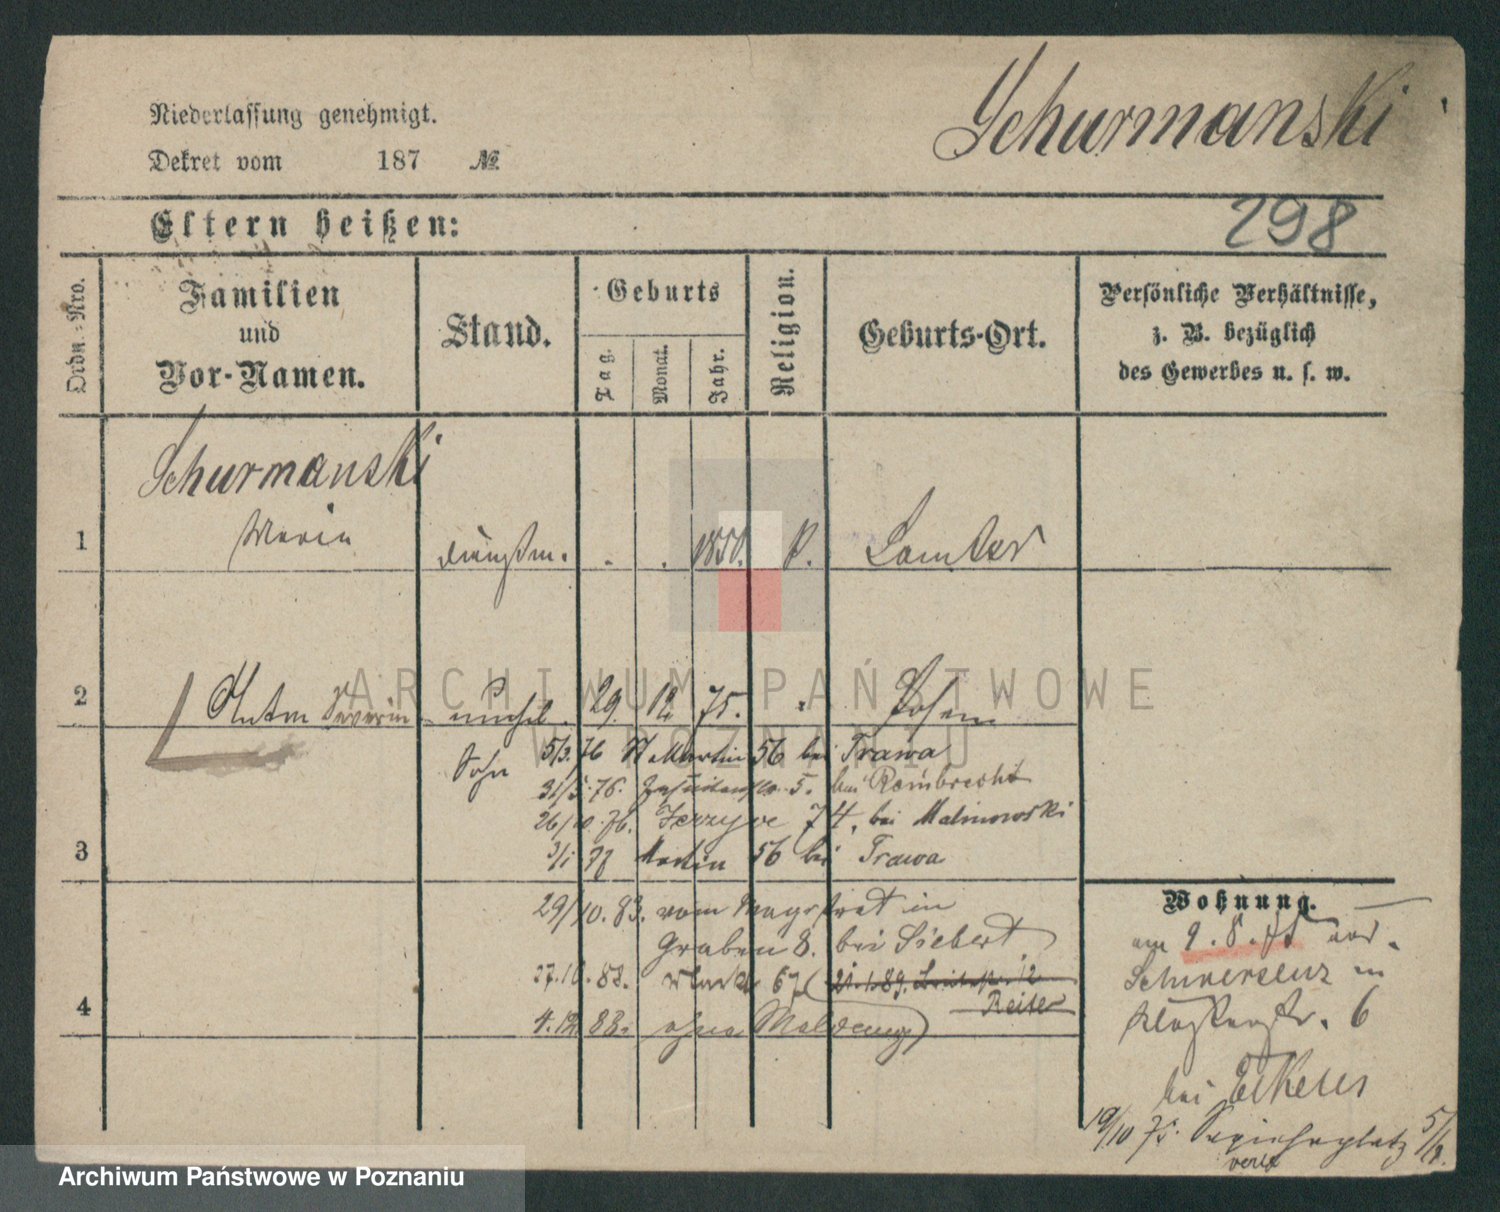 Schurmanski
Niederlassung genehmigt.
Dekret vom 187 №
298
Eltern heißen:
Ordn.-Nro.
Familien
und
Vor-Namen.
Stand.
Geburts
Tag.
Monat.
Jahr.
Religion.
Geburts-Ort.
Persönliche Verhältnisse,
z. B. bezüglich
des Gewerbes u. s. w.
Schurmanski
1 Maria . . 1850. Samter
2 Anton Severin unehel. 29. 12. 75. Posen
Sohn 5/3. 76 St Martin 56 bei Trawa
31/5. 76. 5. bei Rembrecht
26/10. 76. Jerzyce 74. bei Malinowski
3 3/1 77 Martin 56 bei Trawa
29/10. 83. vom Magistrat in
Graben 8. bei Siebert
4 27.10. 83. 67
Reiter
4.12. 83. ohne Meldung
Wohnung.
am 9. 8. 75 aus
Schwersenz in
Klosterstr. 6
bei
19/10 75.
ARCHIWUM PAŃSTWOWE
W POZNANIU
Archiwum Państwowe w Poznaniu